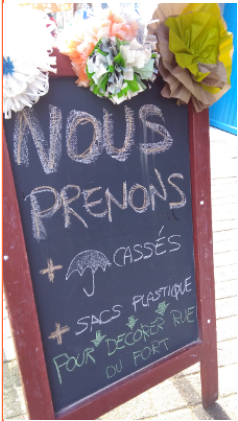 NOUS
PRENONS
+ CASSÉS
+ SACS PLASTIQUE
POUR DÉCORER RUE
DU PORT